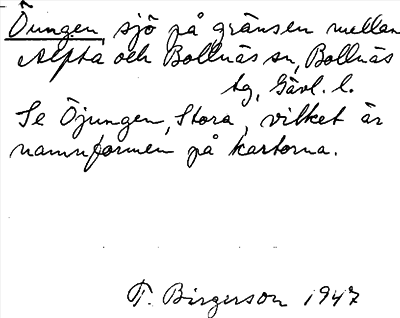 Öungen sjö på gränsen mellan
Alfta och Bollnäs sn, Bollnäs
tg, Gävl. l.
Se Öjungen, Stora, vilket är
namnformen på kartorna.
T. Birgerson 1947